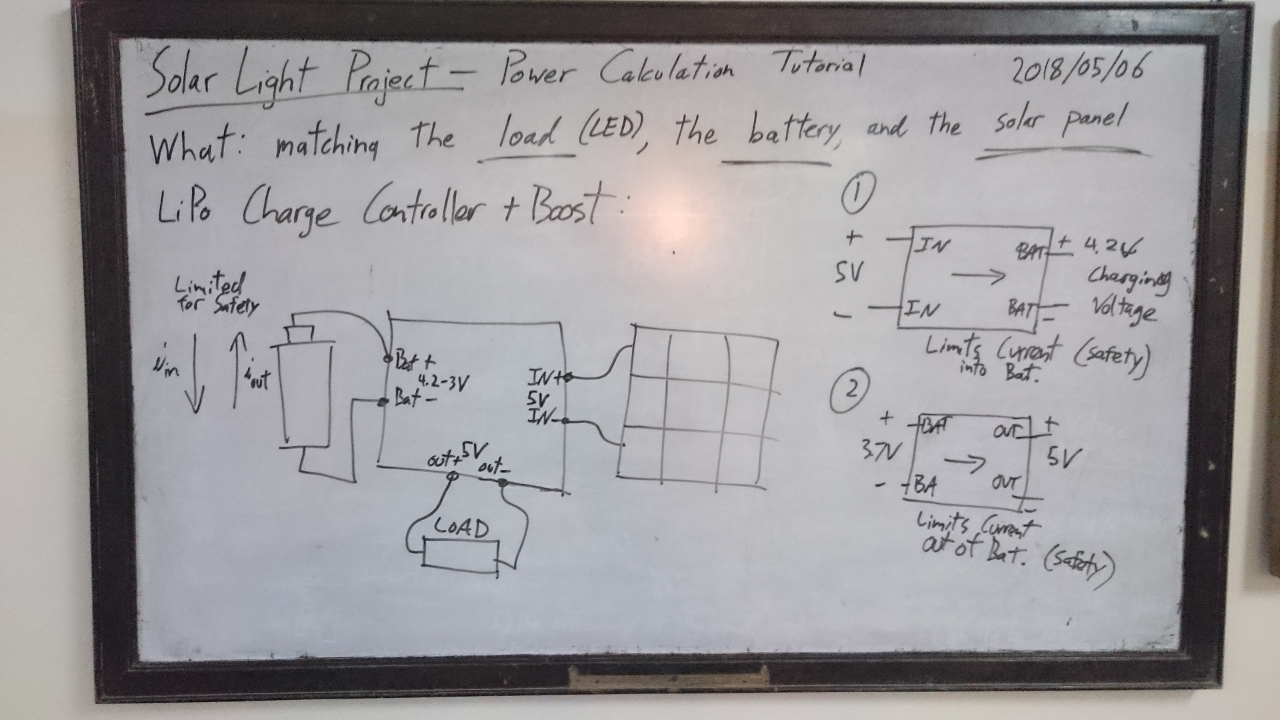 Solar Light Project — Power Calculation Tutorial 2018/05/06
What: matching the load (LED), the battery, and the solar panel
LiPo Charge Controller + Boost:
Limited
for Safety
iin
iout
Bat +
4.2-3V
Bat -
IN+
5V
IN-
out+ 5V out-
LOAD
1
+
5V
-
IN
IN
BAT
BAT
+ 4.2V
Charging
Voltage
-
Limits Current (safety)
into Bat.
2
+
3.7V
-
BAT
BA
OUT
OUT
+
5V
-
Limits Current
out of Bat. (Safety)